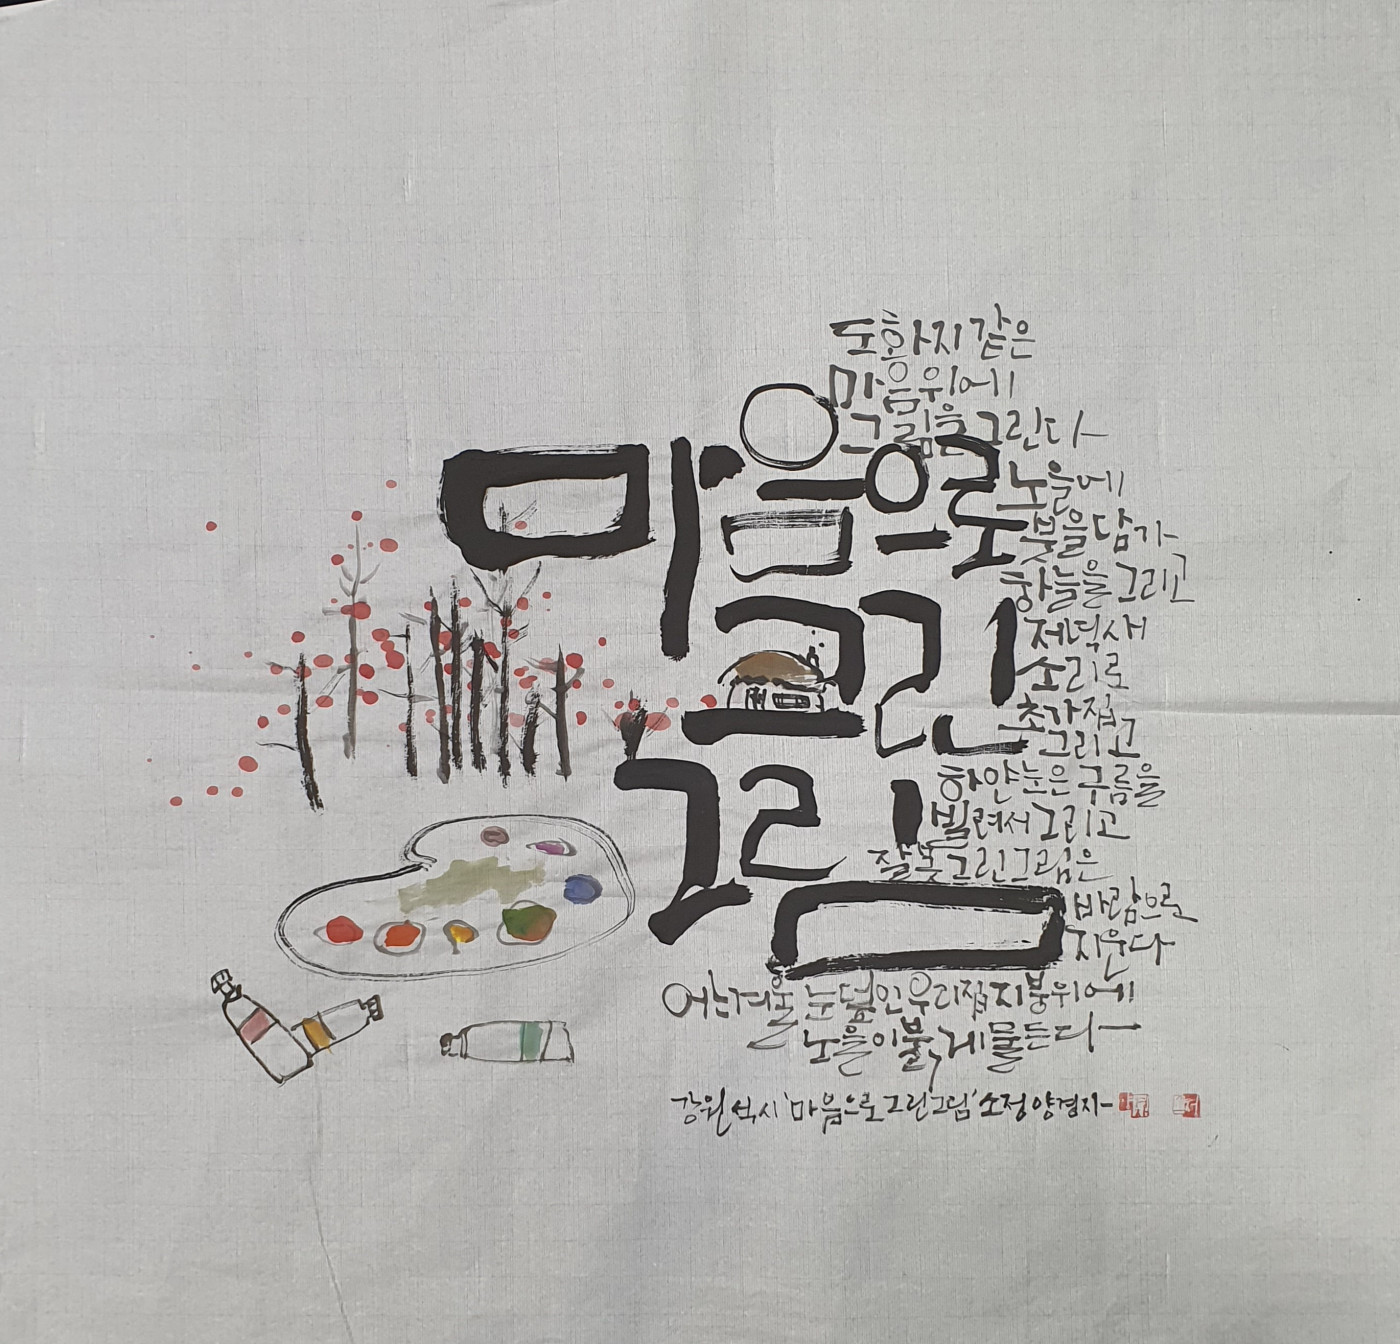 마음으로
그린
그림
도화지 같은
마음위에
그림을 그린다
노을에
붓을 담가
하늘을 그리고
저녁새
소리로
초가집
그리고
하얀눈은 구름을
빌려서 그리고
잘못 그린 그림은
바람으로
지운다
어느겨울 눈덮인 우리집 지붕위에
노을이 붉게 물든다
강원석 시 '마음으로 그린 그림' 소정 양경자